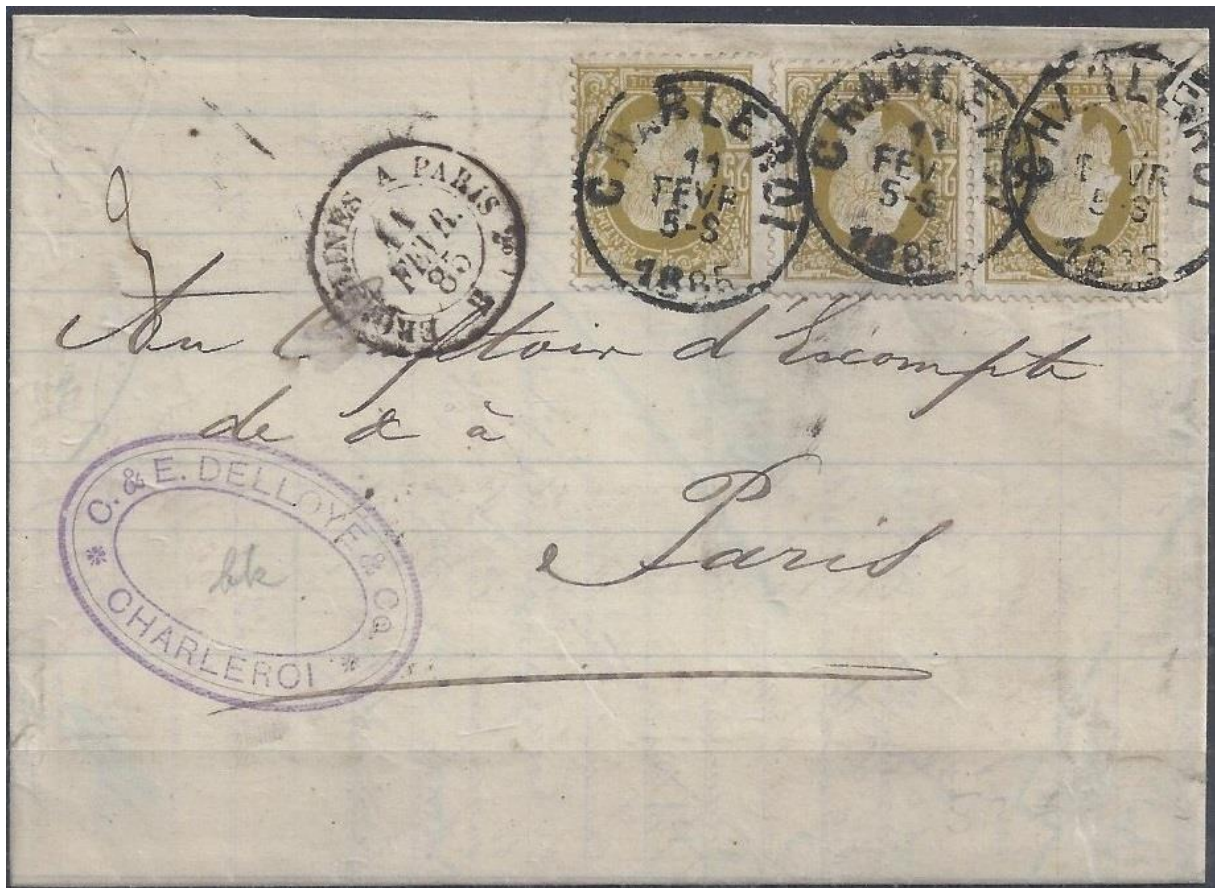 CHARLEROI
11
FEVR
5-S
1885
CHARLEROI
11
FEV
5-S
1885
CHARLEROI
VR
5-S
1885
25
25
A PARIS
11
FEVR.
85
Au Comptoir d'Escompte
de & à
Paris
C. & E. DELLOYE & Co.
* CHARLEROI *
bk